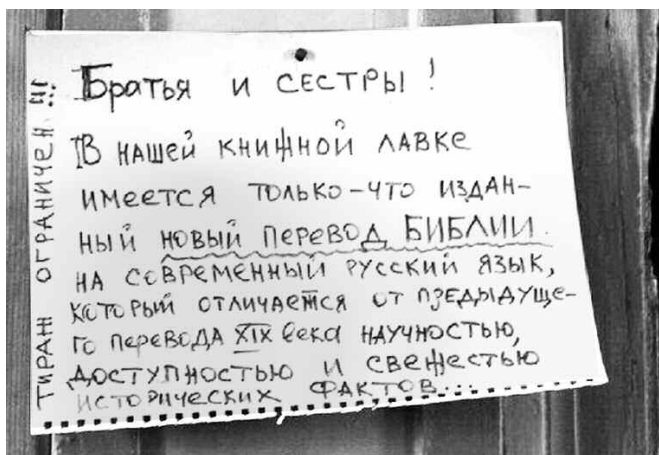 Братья и сестры!
В нашей книжной лавке
имеется только-что издан-
ный новый перевод БИБЛИИ.
на современный русский язык,
который отличается от предыдуще-
го перевода XIX века научностью,
доступностью и свежестью
исторических фактов...
ТИРАЖ ОГРАНИЧЕН !!!